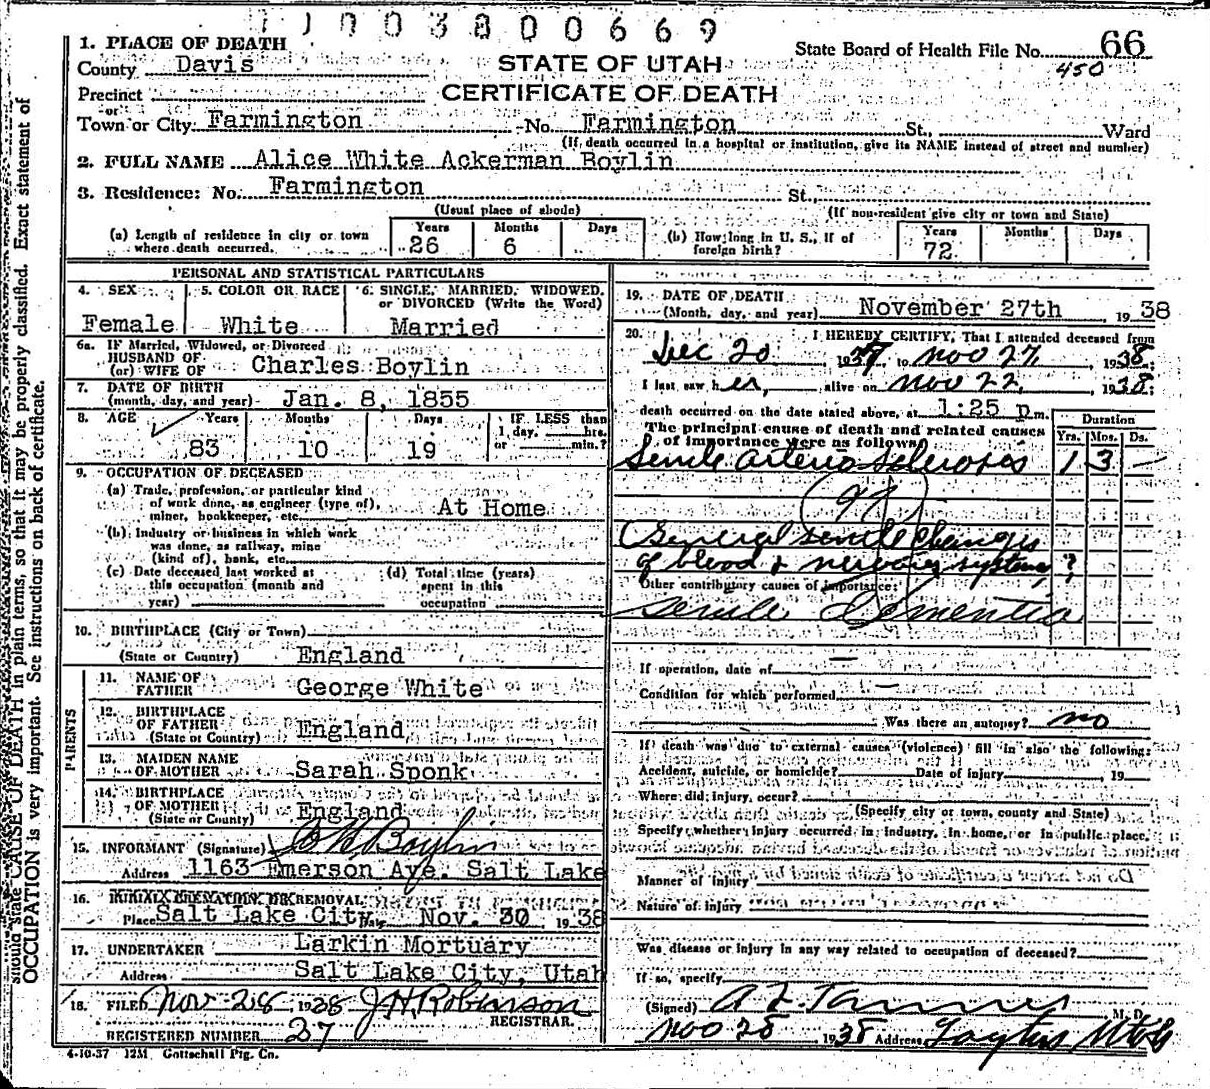 1 1 0 0 3 8 0 0 6 6 9
State Board of Health File No. 66
450
STATE OF UTAH
CERTIFICATE OF DEATH
1. PLACE OF DEATH
County Davis
Precinct
-or-
Town or City Farmington No. Farmington St., Ward
(If death occurred in a hospital or institution, give its NAME instead of street and number)
2. FULL NAME Alice White Ackerman Boylin
3. Residence: No. Farmington St.,
(Usual place of abode) (If non-resident give city or town and State)
(a) Length of residence in city or town where death occurred. Years 26 Months 6 Days
(b) How long in U. S., if of foreign birth? Years 72 Months Days
PERSONAL AND STATISTICAL PARTICULARS
4. SEX Female
5. COLOR OR RACE White
6. SINGLE, MARRIED, WIDOWED, or DIVORCED (Write the Word) Married
6a. IF Married, Widowed, or Divorced
HUSBAND OF
(or) WIFE OF Charles Boylin
7. DATE OF BIRTH
(month, day, and year) Jan. 8, 1855
8. AGE Years 83 Months 10 Days 19 IF LESS than 1 day, hrs. or min.?
9. OCCUPATION OF DECEASED
(a) Trade, profession, or particular kind
of work done, as engineer (type of),
miner, bookkeeper, etc. At Home
(b) Industry or business in which work
was done, as railway, mine
(kind of), bank, etc.
(c) Date deceased last worked at
this occupation (month and
year)
(d) Total time (years)
spent in this
occupation
10. BIRTHPLACE (City or Town)
(State or Country) England
PARENTS
11. NAME OF FATHER George White
12. BIRTHPLACE OF FATHER
(State or Country) England
13. MAIDEN NAME OF MOTHER Sarah Sponk
14. BIRTHPLACE OF MOTHER
(State or Country) England
15. INFORMANT (Signature) Boylin
Address 1163 Emerson Ave. Salt Lake
16. REMOVAL
Place Salt Lake City, Date Nov. 30, 1938
17. UNDERTAKER Larkin Mortuary
Address Salt Lake City, Utah
18. FILED Nov 28 1938 J H Robinson
REGISTRAR.
REGISTERED NUMBER 37
4-10-37 12M Gottschall Ptg. Co.
19. DATE OF DEATH
(Month, day, and year) November 27th 1938
20. I HEREBY CERTIFY, That I attended deceased from
Dec 20, 1937 to Nov 27, 1938
I last saw her alive on Nov 22, 1938
death occurred on the date stated above, at 1:25 p.m.
The principal cause of death and related causes
of importance were as follows:
Duration
Yrs. Mos. Ds.
Senile arterio sclerosis 1 3 —
(97)
General senile changes
of blood & nervous systems ?
Other contributory causes of importance:
Senile Dementia
If operation, date of —
Condition for which performed —
Was there an autopsy? no
If death was due to external causes (violence) fill in also the following:
Accident, suicide, or homicide? Date of injury , 19
Where did injury occur?
(Specify city or town, county and State)
Specify whether injury occurred in industry, in home, or in public place.
Manner of injury
Nature of injury
Was disease or injury in any way related to occupation of deceased?
If so, specify
(Signed) A Z Tanner M. D.
Nov 28 1938 Address Layton Utah
should state CAUSE OF DEATH in plain terms, so that it may be properly classified. Exact statement of
OCCUPATION is very important. See instructions on back of certificate.